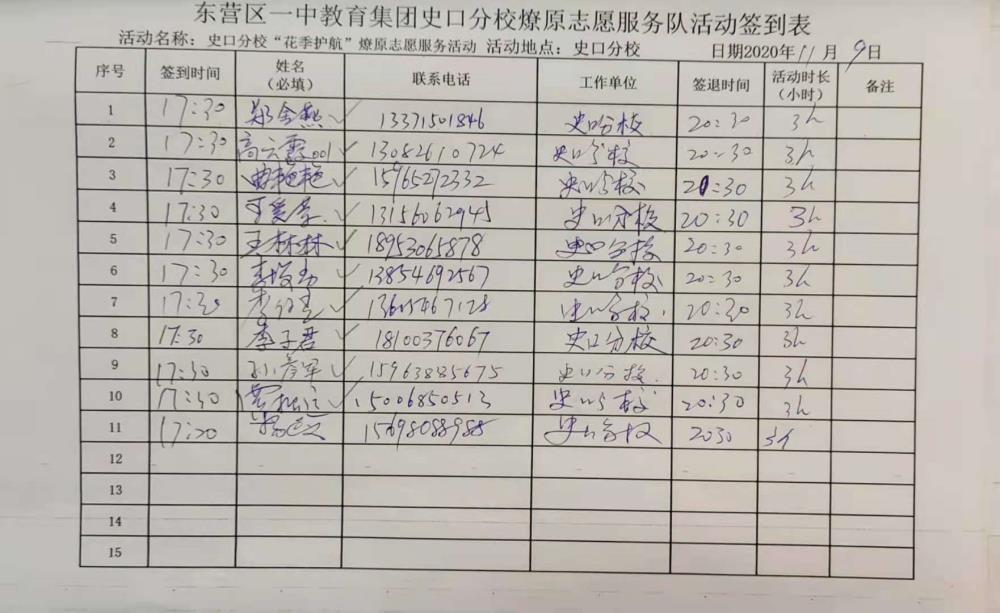 东营区一中教育集团史口分校燎原志愿服务队活动签到表
活动名称：史口分校“花季护航”燎原志愿服务活动 活动地点：史口分校 日期2020年11月9日
序号 签到时间 姓名（必填） 联系电话 工作单位 签退时间 活动时长（小时） 备注
1 17:30 郑金燕 ✓ 13371501846 史口分校 20:30 3h
2 17:30 高云霞001 ✓ 13082610724 史口分校 20:30 3h
3 17:30 曲艳艳 ✓ 15965272332 史口分校 20:30 3h
4 17:30 ✓ 13156062945 史口分校 20:30 3h
5 17:30 王林林 ✓ 18953065878 史口分校 20:30 3h
6 17:30 ✓ 13854692567 史口分校 20:30 3h
7 17:30 ✓ 13605467128 史口分校 20:30 3h
8 17:30 李子君 ✓ 18100376067 史口分校 20:30 3h
9 17:30 孙彦军 ✓ 15963885675 史口分校 20:30 3h
10 17:30 ✓ 15006850513 史口分校 20:30 3h
11 17:20 15698088988 史口分校 2030 3h
12
13
14
15